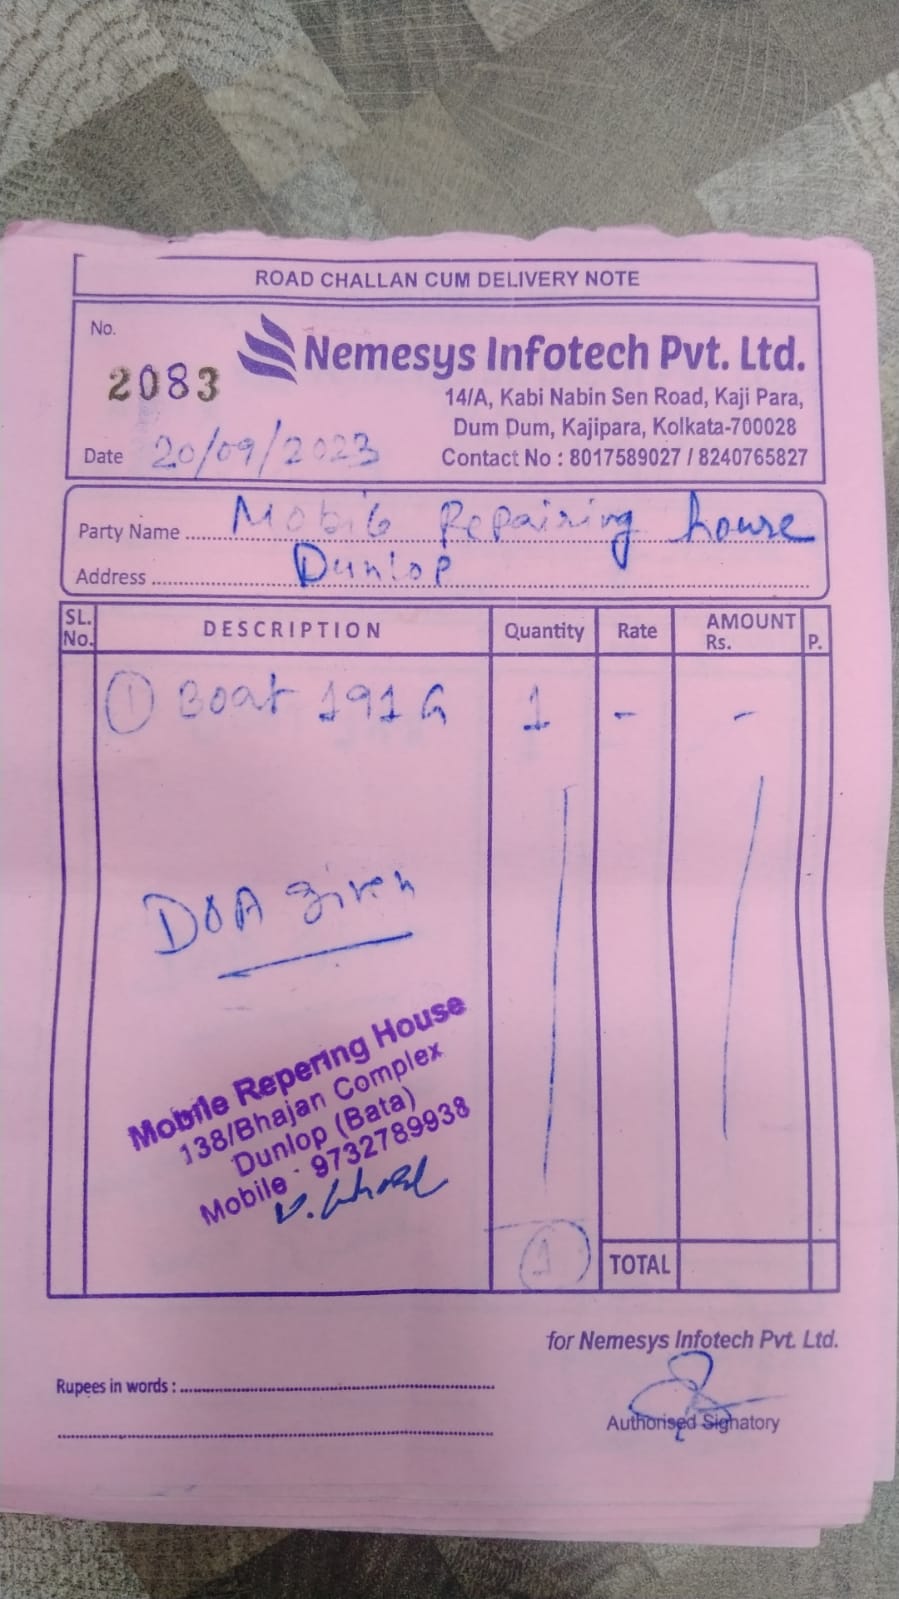 ROAD CHALLAN CUM DELIVERY NOTE
No.
2083
Nemesys Infotech Pvt. Ltd.
14/A, Kabi Nabin Sen Road, Kaji Para,
Dum Dum, Kajipara, Kolkata-700028
Date 20/09/2023
Contact No : 8017589027 / 8240765827
Party Name Mobile Repairing house
Address Dunlop
SL. No. DESCRIPTION Quantity Rate AMOUNT Rs. P.
① Boat 191 G 1 - -
DOA given
Mobile Repering House
138/Bhajan Complex
Dunlop (Bata)
Mobile - 9732789938
1
TOTAL
for Nemesys Infotech Pvt. Ltd.
Rupees in words :
Authorised Signatory